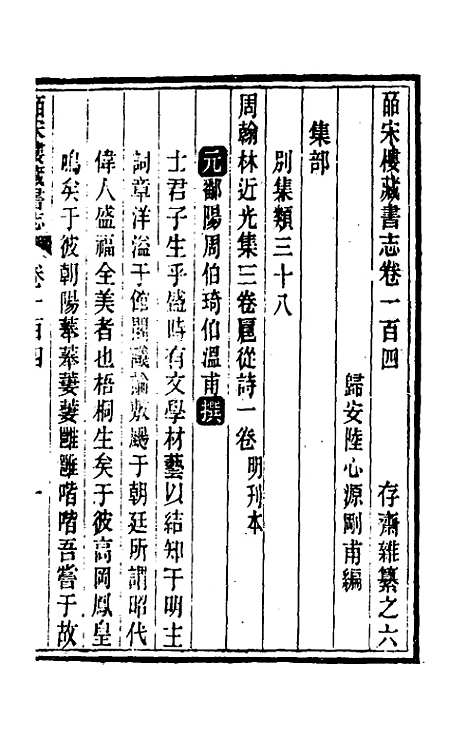 皕宋樓藏書志卷一百四 存齋雜纂之六
歸安陸心源剛甫編
集部
別集類三十八
周翰林近光集三卷扈從詩一卷 明刊本
元鄱陽周伯琦伯溫甫撰
士君子生乎盛時有文學材藝以結知于明主
詞章洋溢于館閣議論敷颺于朝廷所謂昭代
偉人盛福全美者也梧桐生矣于彼高岡鳳皇
鳴矣于彼朝陽菶菶萋萋雝雝喈喈吾嘗于故
皕宋樓藏書志 卷一百四 一